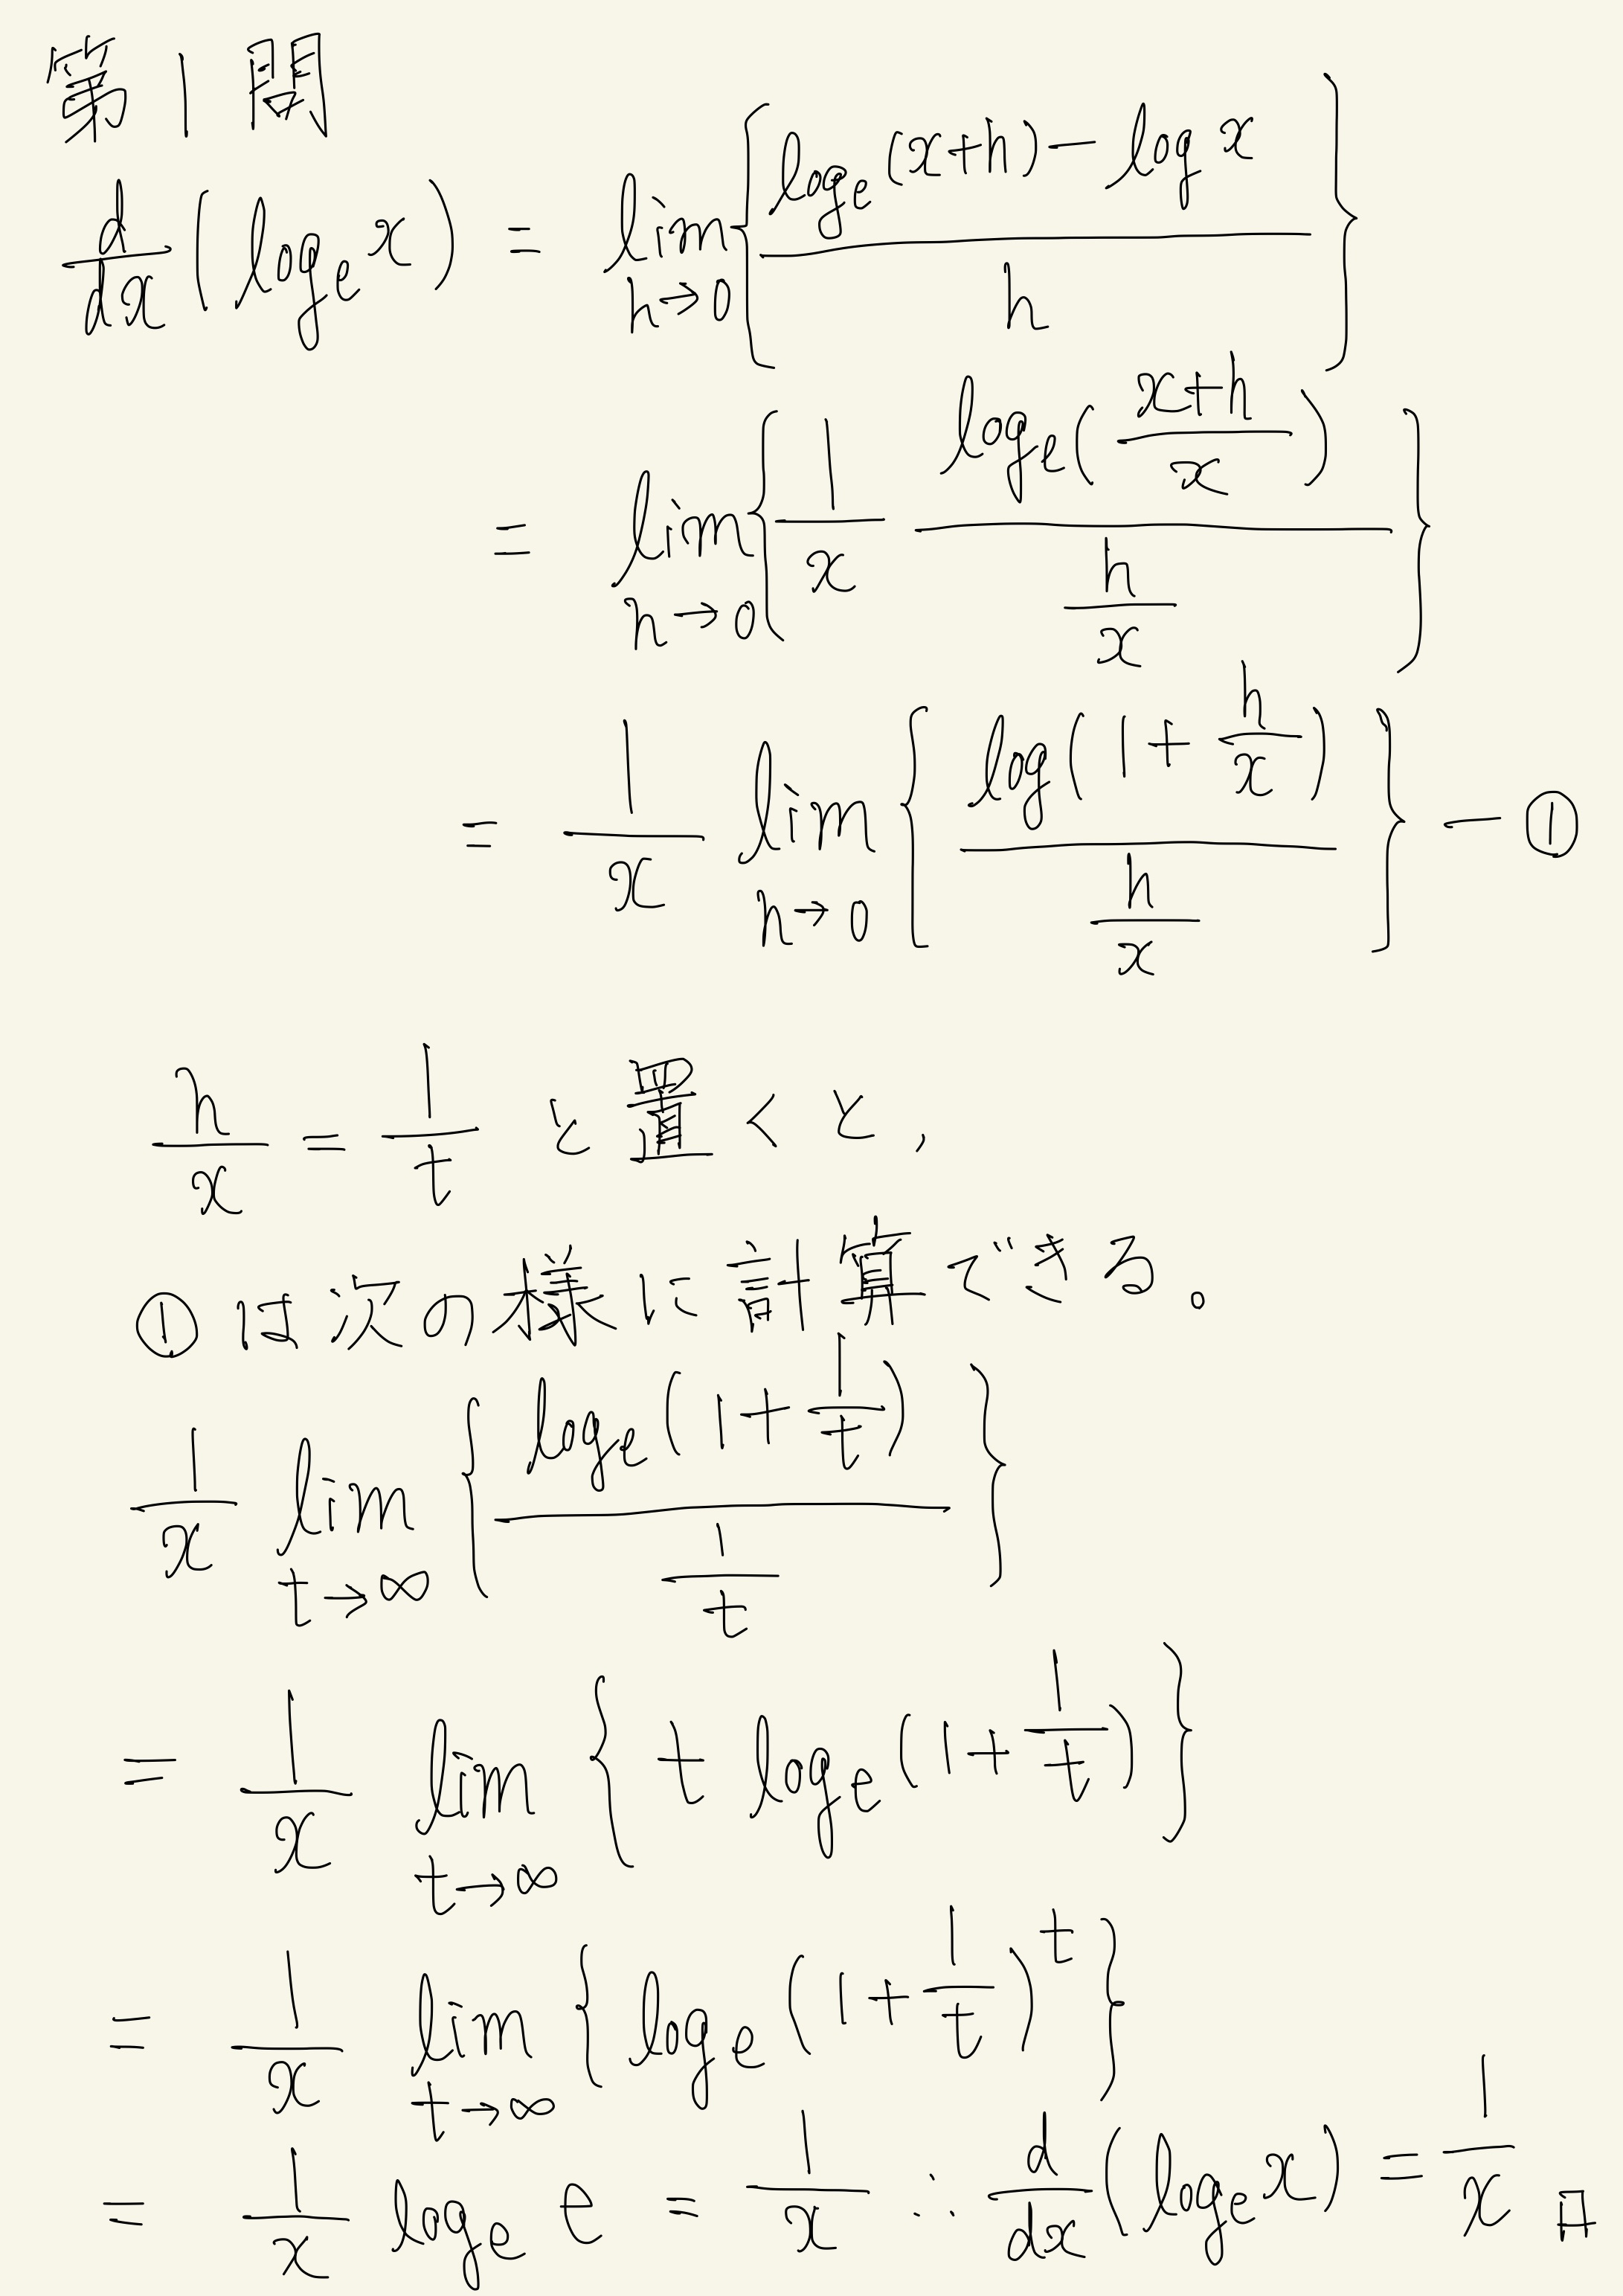 第1問
d/dx (log_e x) = lim_{h→0} { (log_e (x+h) - log x) / h }
= lim_{h→0} { 1/x · log_e ((x+h)/x) / (h/x) }
= 1/x lim_{h→0} { log (1 + h/x) / (h/x) } - ①
h/x = 1/t と置くと,
①は次の様に計算できる。
1/x lim_{t→∞} { log_e (1 + 1/t) / (1/t) }
= 1/x lim_{t→∞} { t log_e (1 + 1/t) }
= 1/x lim_{t→∞} { log_e (1 + 1/t)^t }
= 1/x log_e e = 1/x ∴ d/dx (log_e x) = 1/x